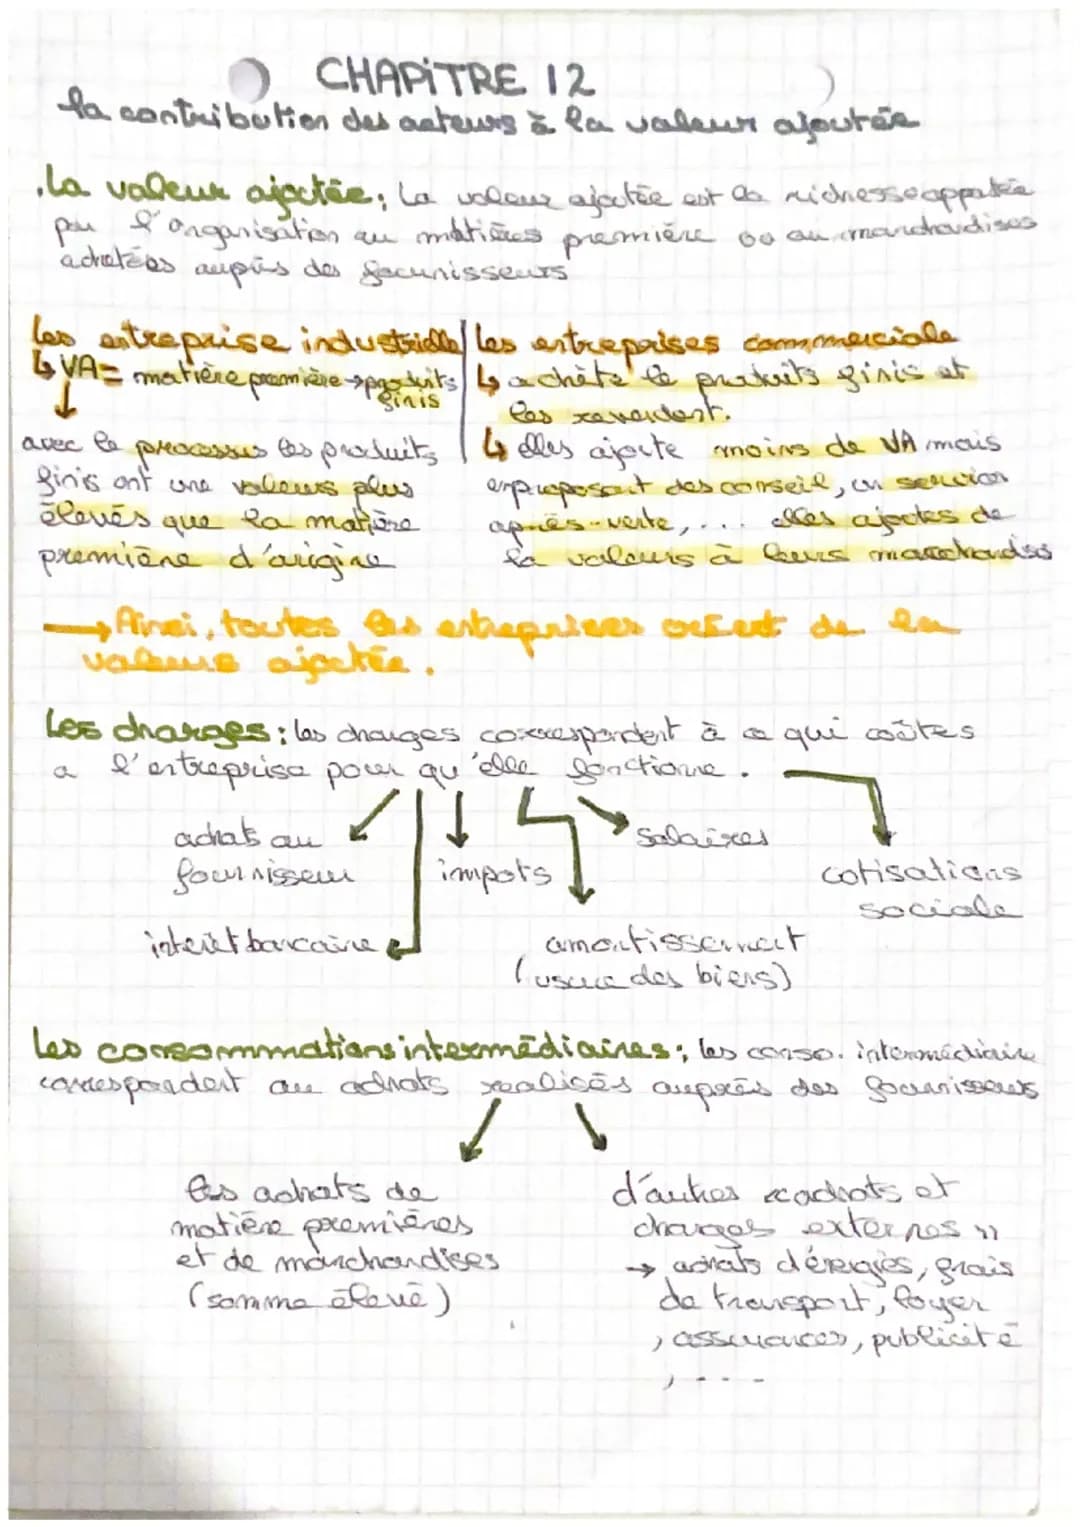 CHAPiTRE 12
la contribution des acteurs à la valeur ajoutée
.La valeur ajoctée; La valeur ajoutée est la richesse apportée
par l'organisation au matières première ou au marchandises
achetées auprès des fournisseurs
les entreprise industrielle
↳ VA = matière première → produits finis
↓
avec le processus les produits
finis ont une valeurs plus
élevés que la matière
première d'origine
les entreprises commerciale
↳ achète le produits finis et
les revendent.
↳ elles ajoute moins de VA mais
en proposant des conseil, un service
après-vente,... elles ajoutes de
la valeurs à leurs marchandises
→ Ainsi, toutes les entreprises créent de la
valeurs ajoctée.
Les charges; les charges correspondent à ce qui coûtes
a l'entreprise pour qu'elle fonctionne.
achats au
fournisseur
impots
salaires
cotisations
sociale
interêt bancaire
amortissement
(usure des biens)
Les consommations intermédiaires; les conso. intermédiaire
correspondent au achats realisés auprès des fournisseurs
les achats de
matière premières
et de marchandises
(somme élevé)
d'autres «achats et
charges externes »
→ achats d'énergies, frais
de transport, loyer
, assurances, publicité
, ----